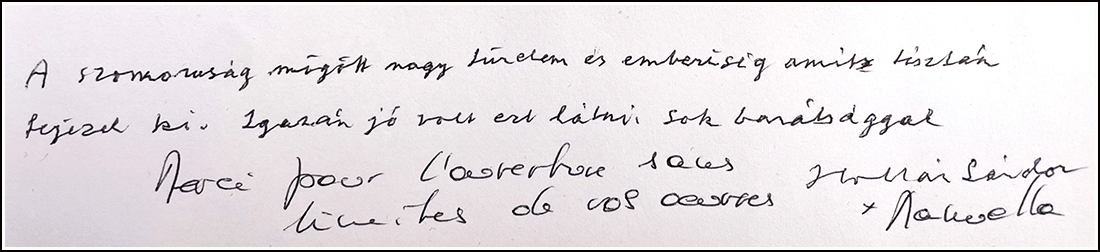 A szomoruság mögött nagy türelem és emberiség amit tisztán
fejezel ki. Igazán jó volt ezt látni. Sok barátsággal
Merci pour l'ouverture sans
limites de vos œuvres
Sándor
+ Manuella